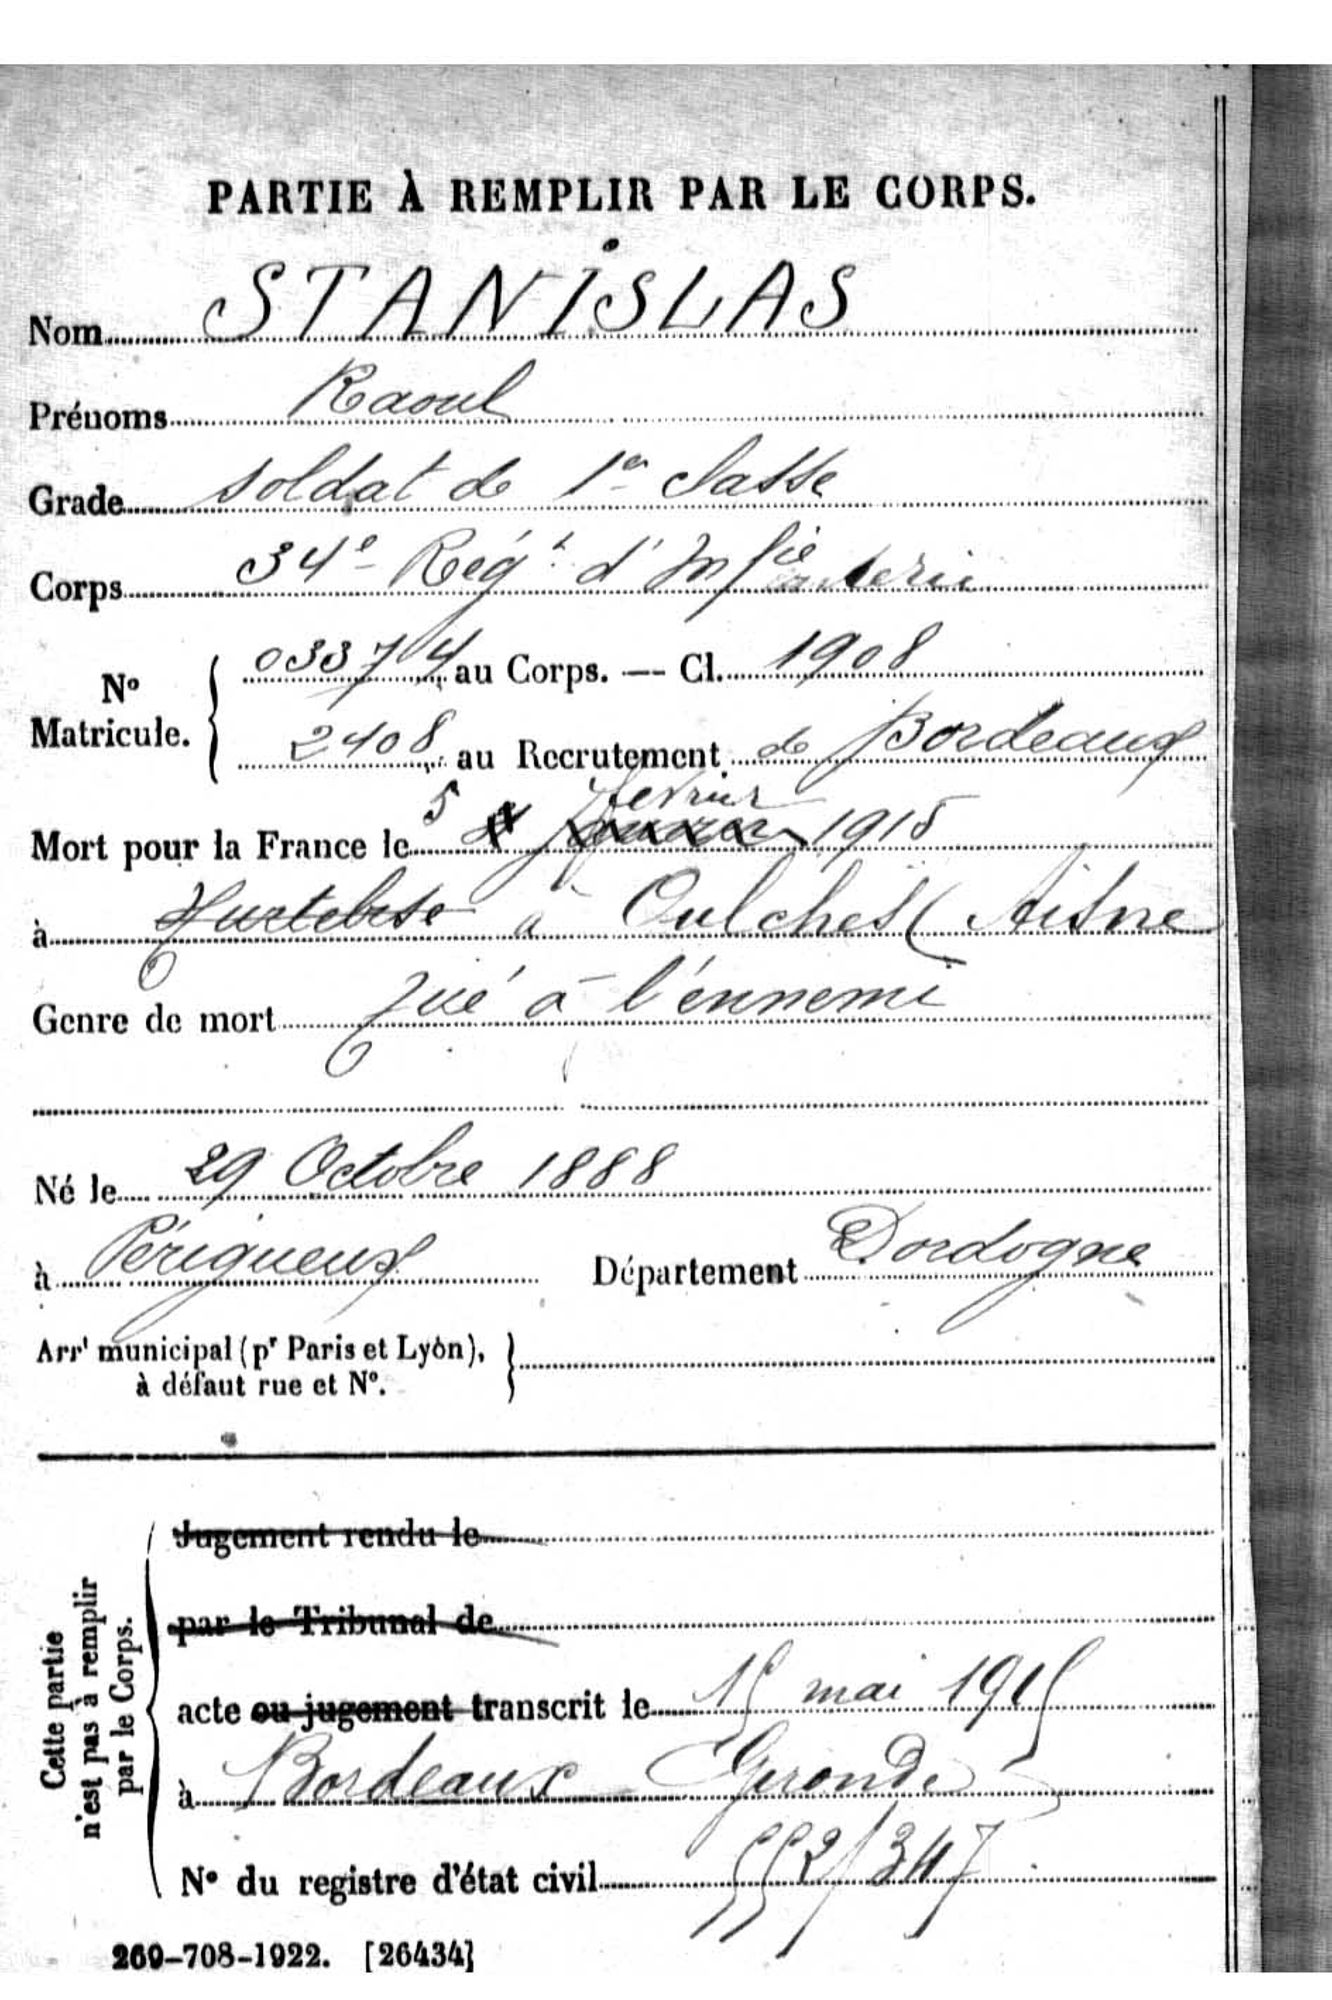 PARTIE À REMPLIR PAR LE CORPS.
Nom STANiSLAS
Prénoms Raoul
Grade soldat de 1re classe
Corps 34e Régt d'Infanterie
No Matricule. { 03374 au Corps. — Cl. 1908
2408 au Recrutement de Bordeaux
février
Mort pour la France le 5 janvier 1915
à Hurtebise à Oulches (Aisne
Genre de mort Tué à l'ennemi
Né le 29 Octobre 1888
à Périgueux Département Dordogne
Arrt municipal (pr Paris et Lyon),
à défaut rue et No.
Cette partie
n'est pas à remplir
par le Corps.
Jugement rendu le
par le Tribunal de
acte ou jugement transcrit le 15 mai 1915
à Bordeaux Gironde
No du registre d'état civil 552/347
269-708-1922. [26434]